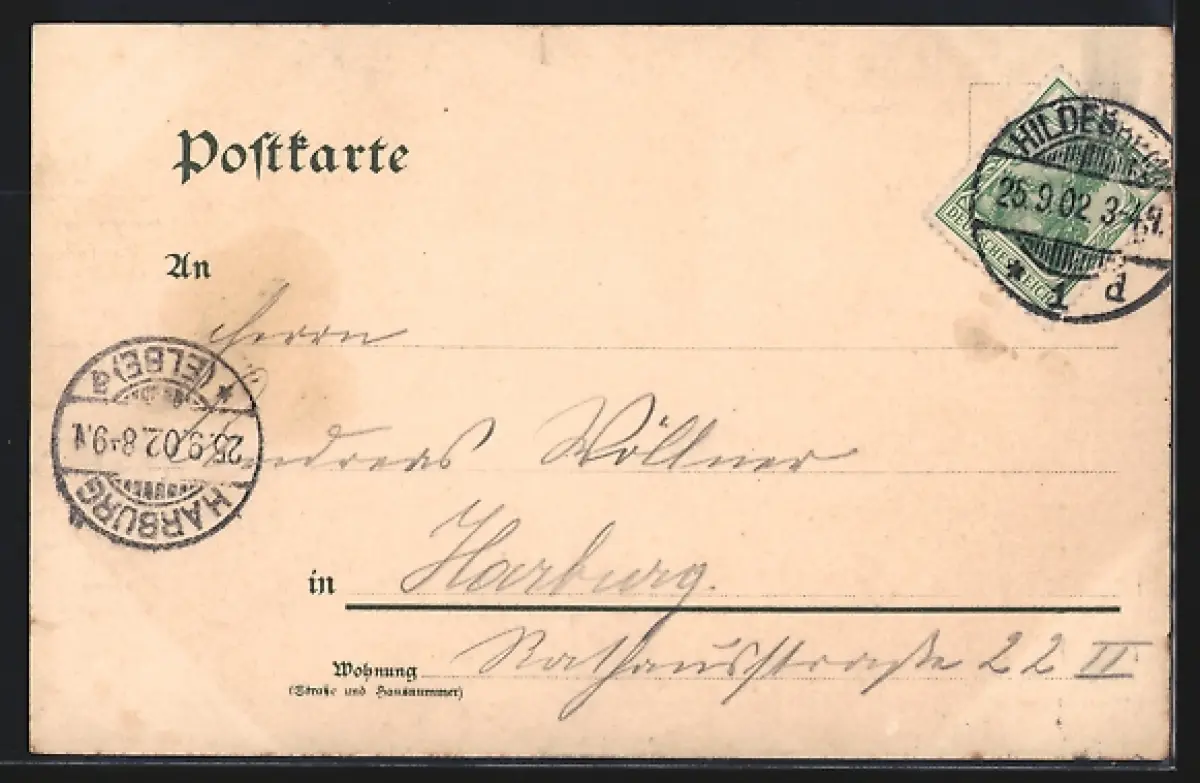 Postkarte
HILDESHEIM
25.9.02. 3-4N.
* 1 d
DEUTSCHES REICH
An
Herrn
Andreas Wöllner
HARBURG
25.9.02. 8-9.N.
* (ELBE) a
in Harburg.
Wohnung Rathausstraße 22 II
(Straße und Hausnummer)